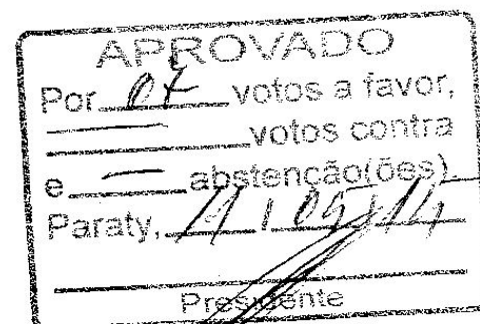 APROVADO
Por votos a favor,
votos contra
e abstenção(ões).
Paraty, 11 / 09 / 14
Presidente